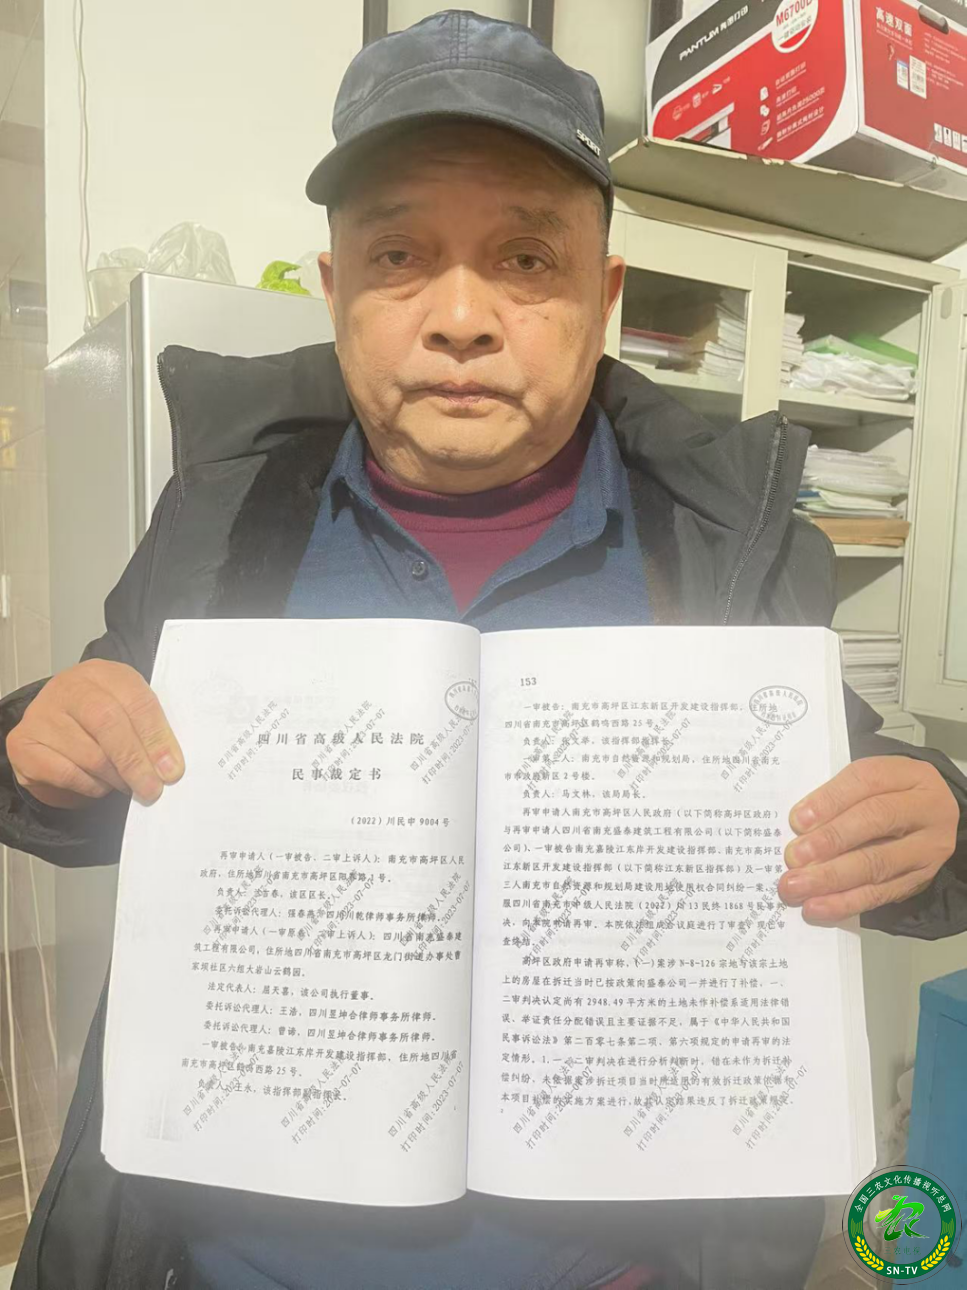 SPORT
PANTUM 奔图打印
M6700D
高速双面
四川省高级人民法院
民事裁定书
（2022）川民申9004号
再审申请人（一审被告、二审上诉人）：南充市高坪区人民
政府，住所地四川省南充市高坪区阳春路1号。
委托诉讼代理人：强春燕，四川川乾律师事务所律师。
再审申请人（一审原告、二审上诉人）：四川省南充盛泰建
筑工程有限公司，住所地四川省南充市高坪区龙门街道办事处曹
家坝社区六组大岩山云鹤园。
法定代表人：屈天嘉，该公司执行董事。
委托诉讼代理人：王浩，四川昱坤合律师事务所律师。
委托诉讼代理人：曾诺，四川昱坤合律师事务所律师。
一审被告：南充嘉陵江东岸开发建设指挥部，住所地四川省
南充市高坪区鹤鸣西路25号。
负责人：王永，该指挥部副指挥长。
153
一审被告：南充市高坪区江东新区开发建设指挥部，住所地
四川省南充市高坪区鹤鸣西路25号。
负责人：张文举，该指挥部指挥长。
一审第三人：南充市自然资源和规划局，住所地四川省南充
市市政新区2号楼。
负责人：马文林，该局局长。
再审申请人南充市高坪区人民政府（以下简称高坪区政府）
与再审申请人四川省南充盛泰建筑工程有限公司（以下简称盛泰
公司）、一审被告南充嘉陵江东岸开发建设指挥部、南充市高坪区
江东新区开发建设指挥部（以下简称江东新区指挥部）及一审第
三人南充市自然资源和规划局建设用地使用权合同纠纷一案，不
服四川省南充市中级人民法院（2022）川13民终1868号民事判
决，向本院申请再审。本院依法组成合议庭进行了审查，现已审
查终结。
高坪区政府申请再审称，（一）案涉N-8-126宗地与该宗土地
上的房屋在拆迁当时已按政策向盛泰公司一并进行了补偿，一、
二审判决认定尚有2948.49平方米的土地未作补偿系适用法律错
误、举证责任分配错误且主要证据不足，属于《中华人民共和国
民事诉讼法》第二百零七条第二项、第六项规定的申请再审的法
定情形。1.一、二审判决在进行分析判断时，错在未作为拆迁补
偿纠纷，未依据案涉拆迁项目当时所适用的有效拆迁政策依据和
本项目补偿的实施方案进行，故其认定结果违反了拆迁政策规定、
四川省高级人民法院
打印时间:2023-07-07
全国三农文化传播视听总网
SN-TV